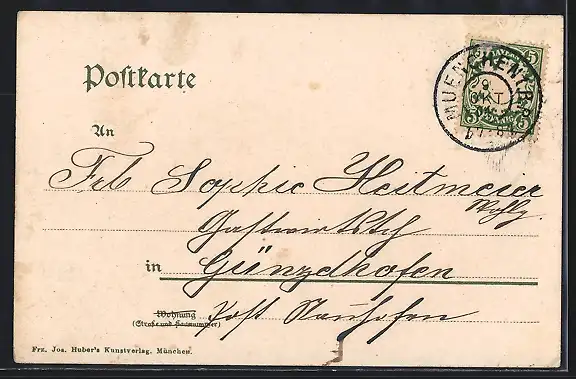 Postkarte
MUENCHEN B.P.
9
OKT.
5 5
An
Frl. Sophie Heitmeier
Gastwirtstch
in Günzelhofen
Wohnung
(Straße und Hausnummer)
Post Nanhofen
Frz. Jos. Huber's Kunstverlag, München.